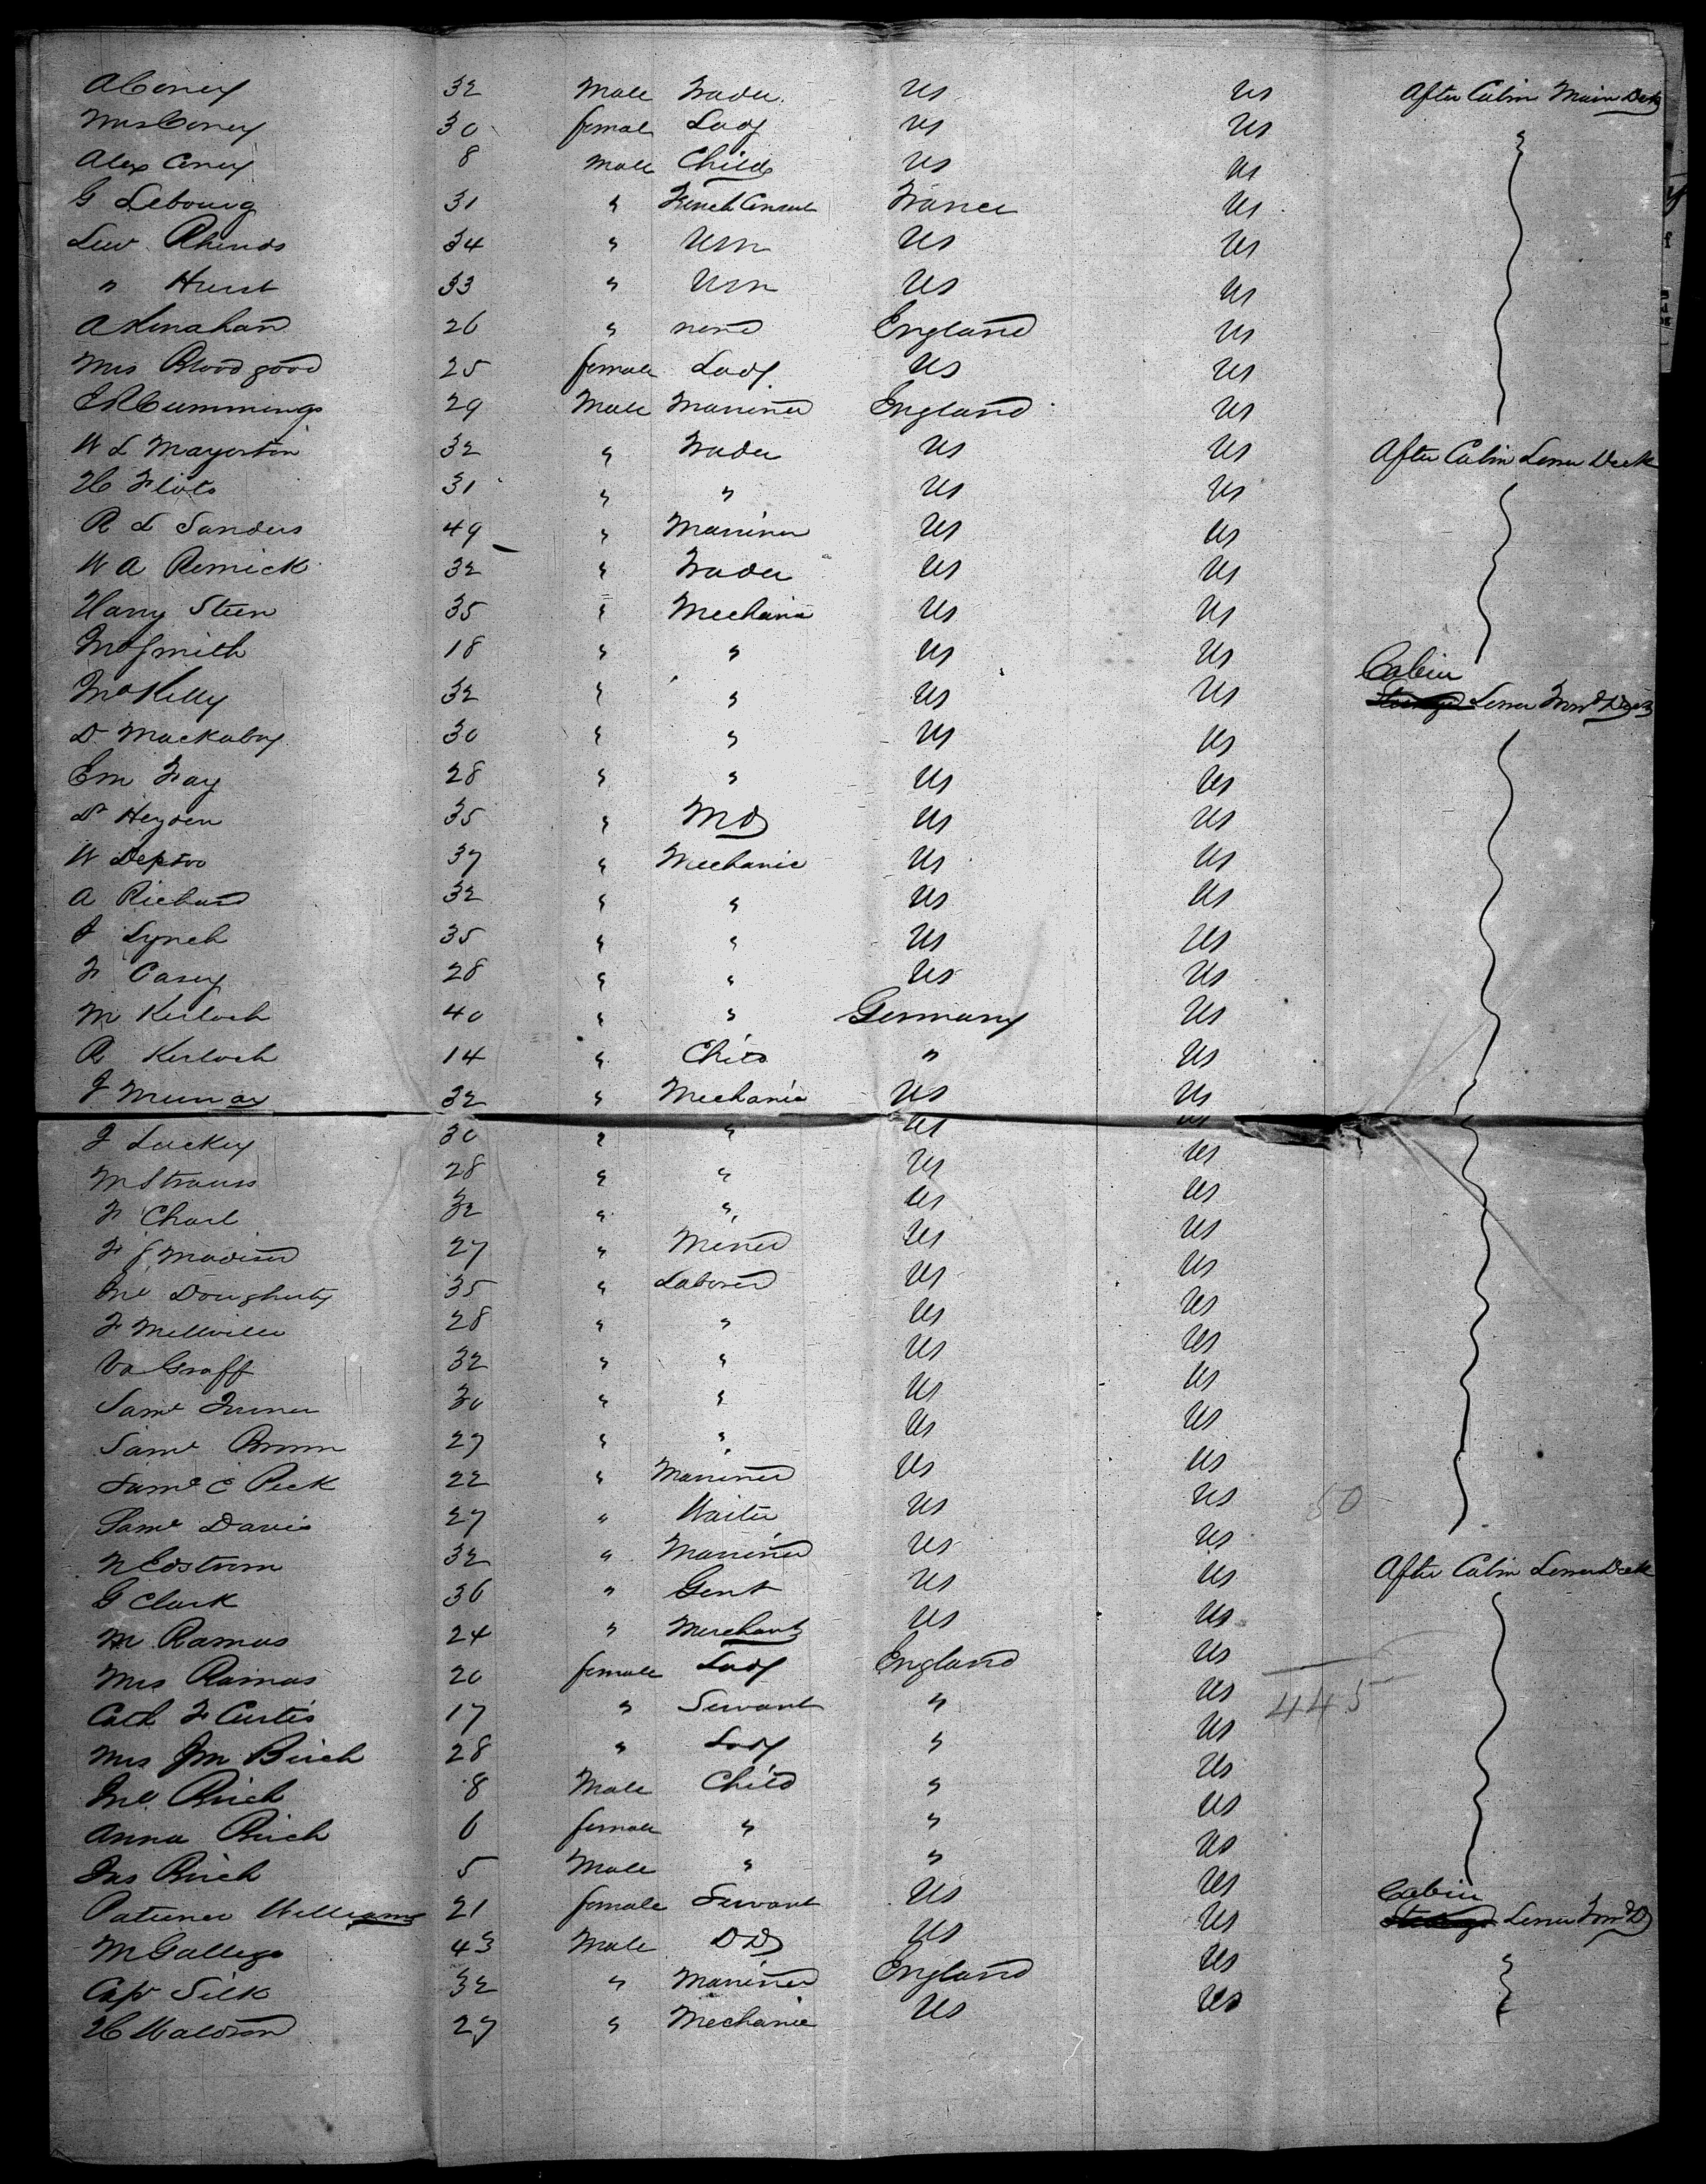 A Coney 32 Male Trader US US After Cabin Main Deck
Mrs Coney 30 female Lady US US "
Alex Coney 8 Male Child US US
G Lebourg 31 " French Consul France US
Lew Rhinds 34 " USN US US
" Hurst 33 " USN US US
A Kinahan 26 " none England US
Mrs Bloodgood 25 female Lady US US
E R Cummings 29 Male Mariner England US
W L Mayortin 32 " Trader US US After Cabin Lower Deck
H Flots 31 " " US US
R L Sanders 49 " Mariner US US
W A Remick 32 " Trader US US
Harry Steen 35 " Mechanic US US
Smith 18 " " US US
Kelly 32 " " US US Cabin Lower Forwd Deck
D Mackaboy 30 " " US US
Em Fay 28 " " US US
Dr Heyden 35 " MD US US
W Deptoo 37 " Mechanic US US
A Richard 32 " " US US
J Lynch 35 " " US US
F Casey 28 " " US US
M Kerloch 40 " " Germany US
R Kerloch 14 " Child " US
J Murray 32 " Mechanic US US
J Luckey 30 " " US US
M Strauss 28 " " US US
F Charl 32 " " US US
F J Madison 27 " Miner US US
Jno Dougherty 35 " Laborer US US
F Mellville 28 " " US US
Graff 32 " " US US
Saml Turner 30 " " US US
Saml Brown 27 " " US US
Saml C Peck 22 " Mariner US US
Saml Davis 27 " Waiter US US 50
N Edstrom 32 " Mariner US US After Cabin Lower Deck
G Clark 36 " Gent US US
M Ramus 24 " Merchant US US
Mrs Ramus 20 female Lady England US
Cath F Curtis 17 " Servant " US 445
Mrs Jm Birch 28 " Lady " US
Jno Birch 8 Male Child " US
Anna Birch 6 female " " US
Jas Birch 5 Male " " US
Patience Williams 21 female Servant US US Cabin Lower Forwd D
M Gallego 43 Male DD US US
Capt Silk 32 " Mariner England US
H Waldron 27 " Mechanic US US